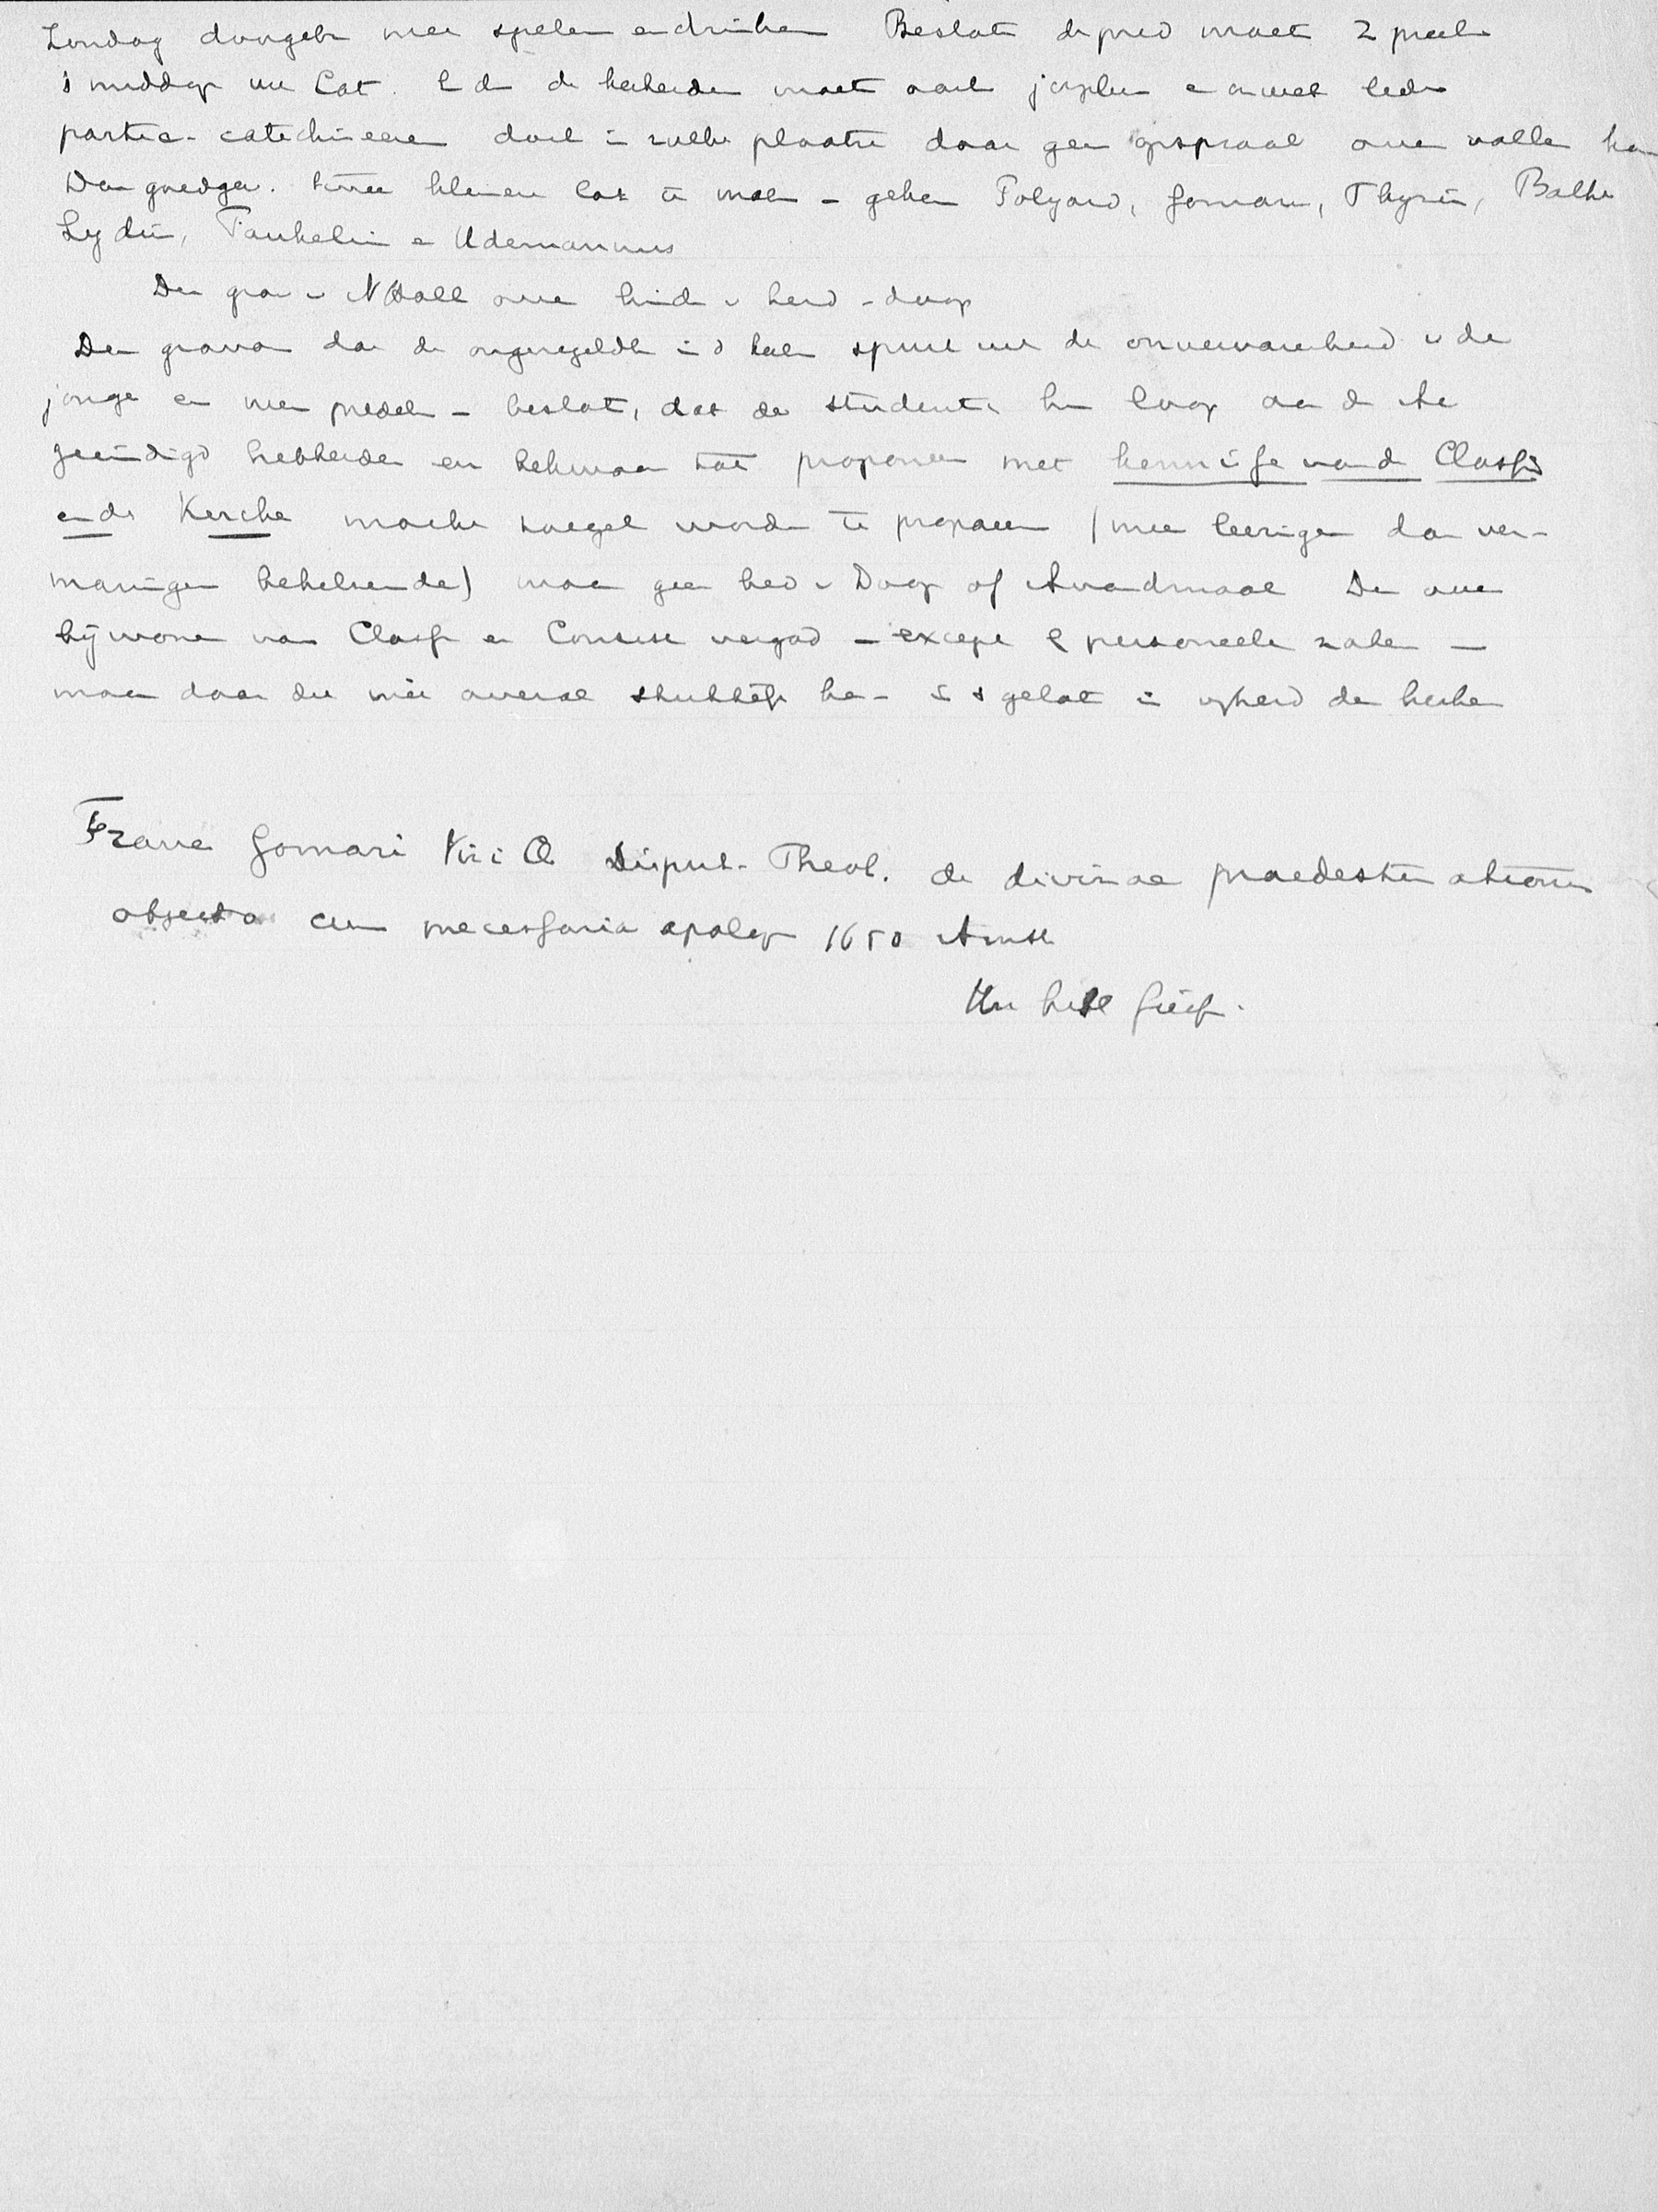 Zondag doorgebr met spelen en drinken Beslot de pred moet 2 preek
's middag uit Cat. de kerkeraden moet ook
partic- catechiseeren doch in zulke plaatse daar geen opspraak over valle kan
Dan goedgek. twee kleinere Cat te mak - gekoz Polyand, Gomar, Thysii, Balk
Lydii, Faukelii en Udemannus
Den gra v N Hall over kind v heid - doop
Den gravam dat de ongeregeldh in d kerk spruit uit de onervarenheid v de
jonge en nieu predik - beslot, dat de student hn loop aan d Ac
geeindigd hebbende en bekwaam tot proponeer met kennisse van d Classis
ende Kerche mochte toegel worde te proponeer (mee leeringe dan ver-
maninge behelsende) maar geen bed v Doop of Avondmaal Den over
bijwone van Class en Consist vergad - except personeele zake -
maar daar dit niet overal stichtel ka- is 't gelat in vrijheid der kerke
Franc Gomari Viri Cl Disput- Theol. de divinae praedestinationis
objecto cum necessaria apolog 1650 Amst